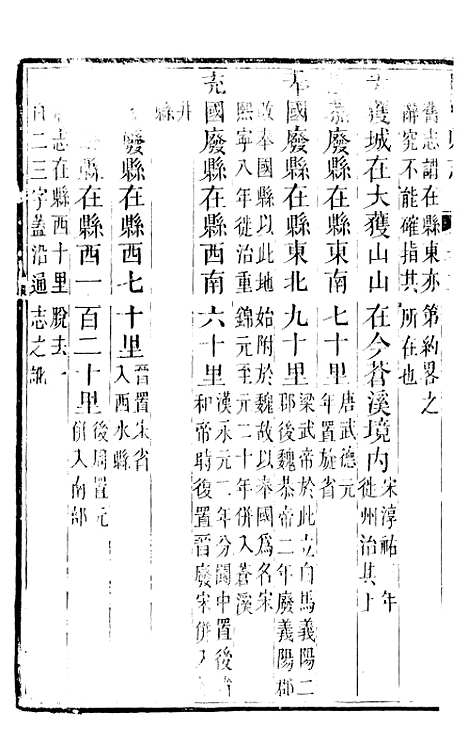 舊志謂在縣東亦第約畧之
辭究不能確指其所在也
獲城在大獲山山在今蒼溪境內宋淳祐年
徙州治其上
恭廢縣在縣東南七十里唐武德元
年置旋省
奉國廢縣在縣東北九十里梁武帝於此立白馬義陽二
郡後魏恭帝二年廢義陽郡
改奉國縣以此地始附於魏故以奉國為名宋
熙寧八年徙治重錦元至元二十年併入蒼溪
充國廢縣在縣西南六十里漢永元二年分閬中置後省
和帝時後置晉廢宋併入
井
縣
廢縣在縣西七十里晉置宋省
入西水縣
縣在縣西一百二十里後周置元
併入南部
志在縣西十里脫去一
百二三字蓋沿通志之訛